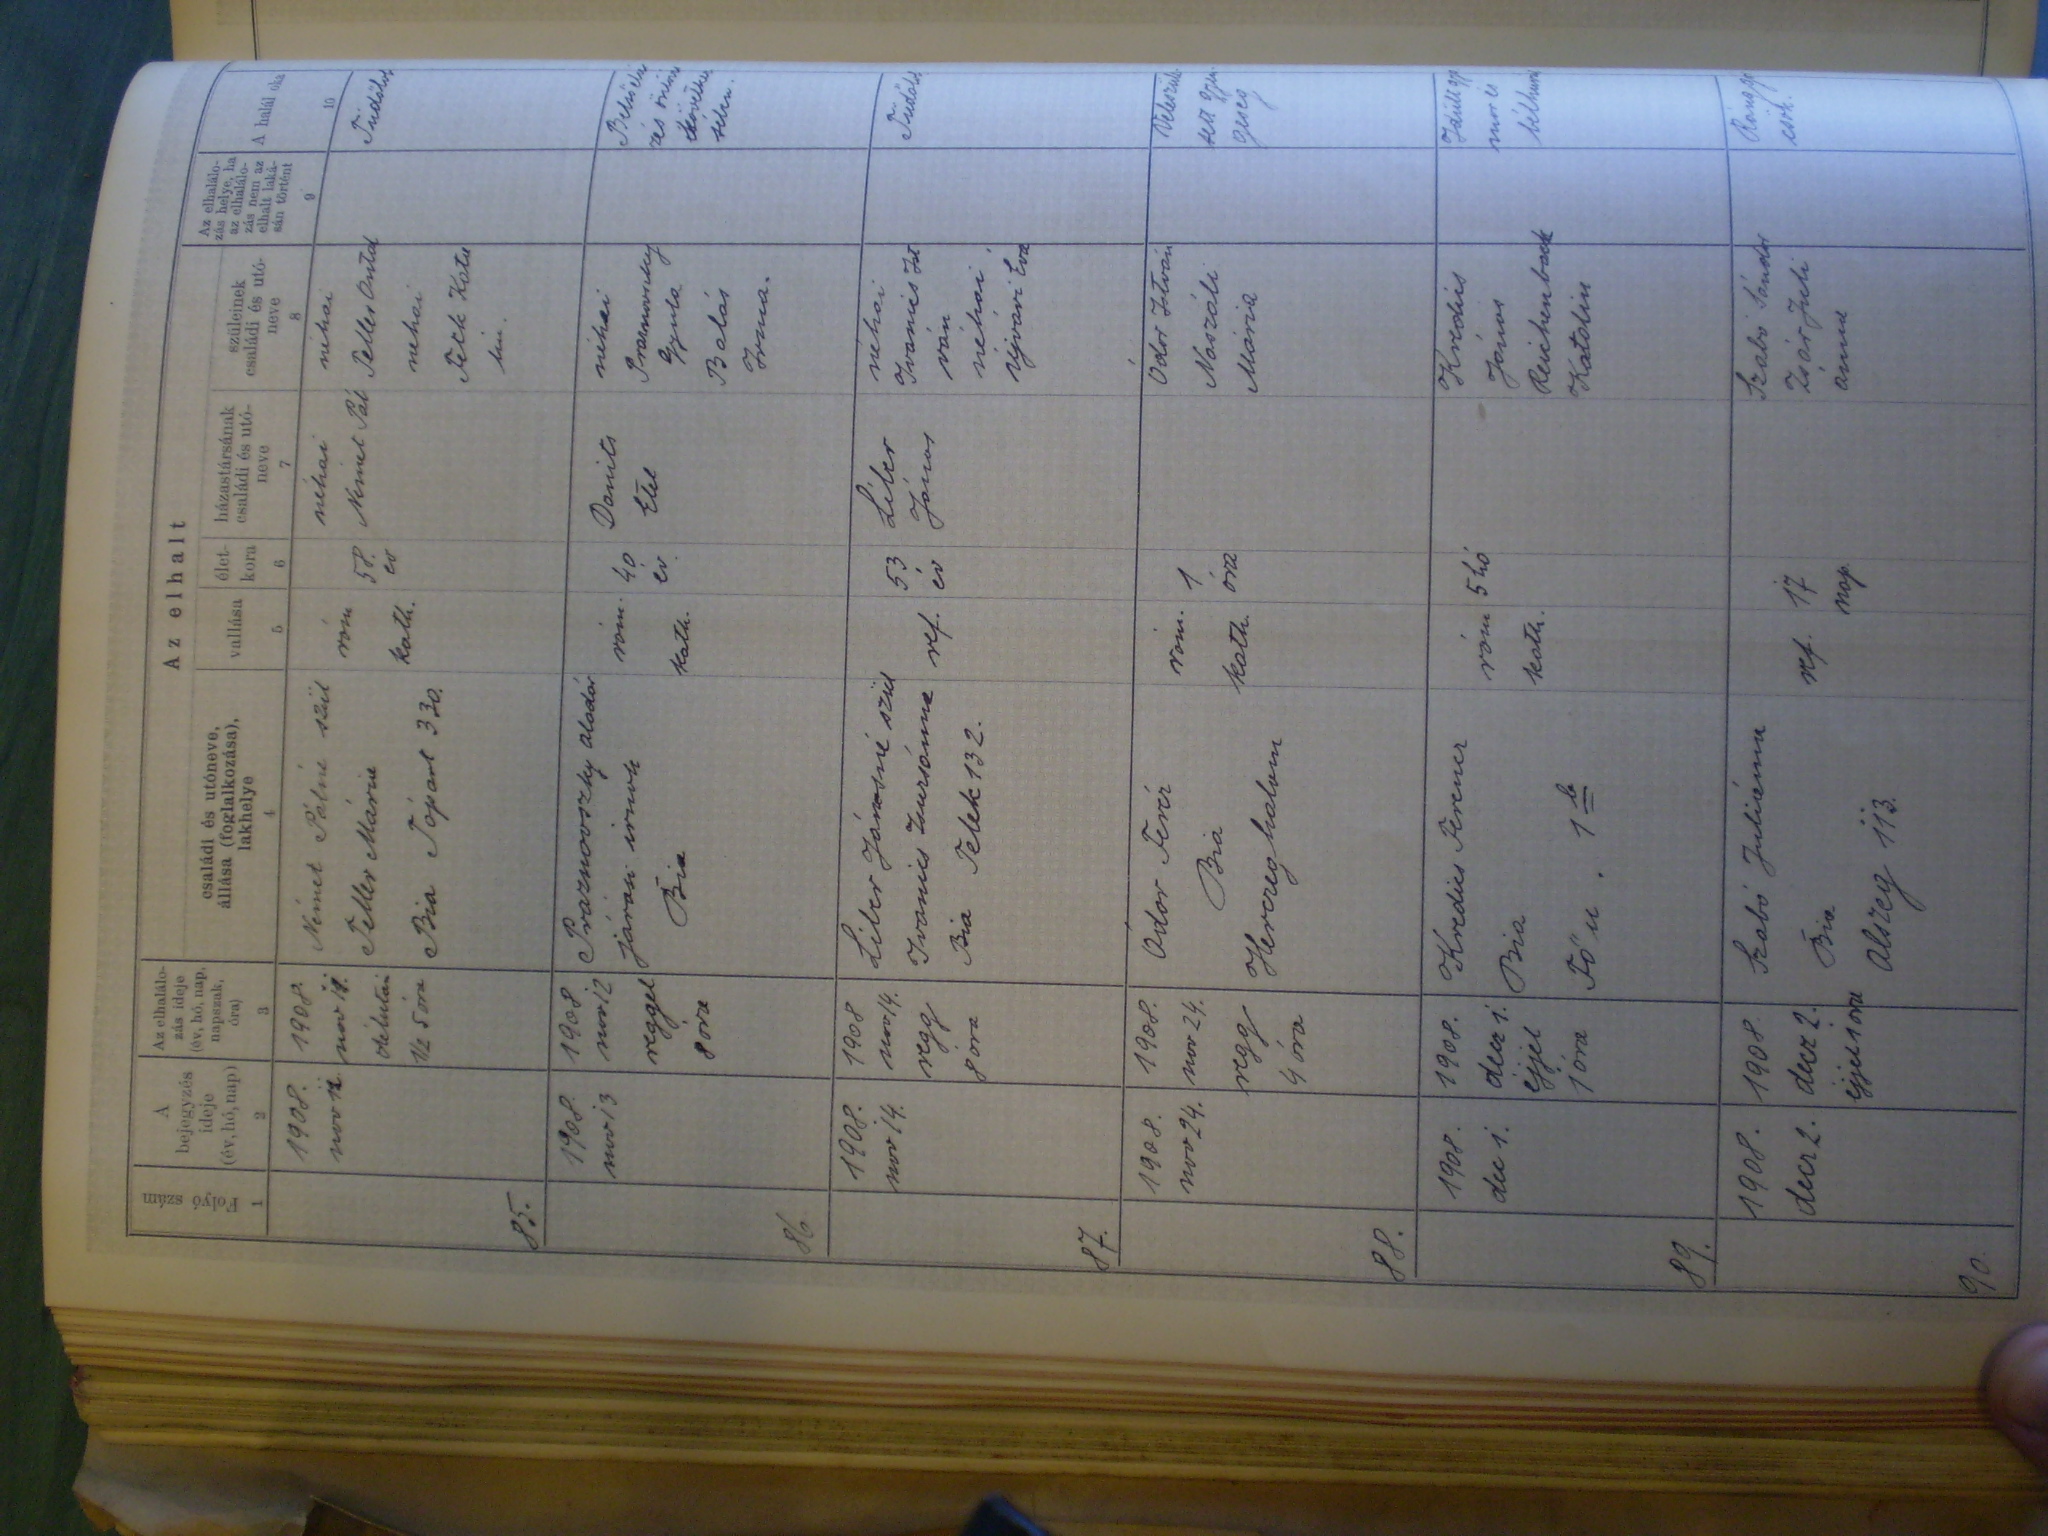 Az elhalt
Folyó szám
A bejegyzés ideje (év, hó, nap)
Az elhalálo-
zás ideje
(év, hó, nap,
napszak,
óra)
családi és utóneve,
állása (foglalkozása),
lakhelye
vallása
élet-
kora
házastársának
családi és utó-
neve
szüleinek
családi és utó-
neve
Az elhalálo-
zás helye, ha
az elhalálo-
zás nem az
elhalt laká-
sán történt
A halál oka
1 2 3 4 5 6 7 8 9 10
85.
1908.
nov 12.
1908.
nov
délután
1/2 5 óra
Német Pálné szül
Teller Mária
Bia Tópart 330.
róm
kath.
58.
év
néhai
Német Pál
néhai
Teller Antal
néhai
Felk Kata
lin.
86
1908.
nov 13
1908
nov 12
reggel
8 óra
Praznovszky Aladár
járási irnok
Bia
róm.
kath.
40
év.
Danits
Etel
néhai
Praznovszky
Gyula
Balás
Irma.
87.
1908.
nov 14.
1908
nov 14.
regg
8 óra
Liber Jánosné szül
Ivanics Zsuzsánna
Bia Telek 132.
ref.
53
év
Liber
János
néhai
Ivanics Ist
ván
néhai
Ujvári Éva
88.
1908.
nov 24.
1908.
nov 24.
regg
4 óra
Ódor Teréz
Bia
Herczeghalom
róm.
kath.
1
óra
Ódor István
Naszáli
Mária
89.
1908.
dec 1.
1908.
decz 1.
éjjel
1 óra
Kredics Ferencz
Bia
Fő u. 1 b
róm
kath.
5 hó
Kredics
János
Reichenback
Katalin
90.
1908.
decz 2.
1908.
decz 2.
éjjeli óra
Szabó Juliánna
Bia
Alszeg 113.
ref.
17
nap.
Szabó Sándor
Zsár Juli
ánna